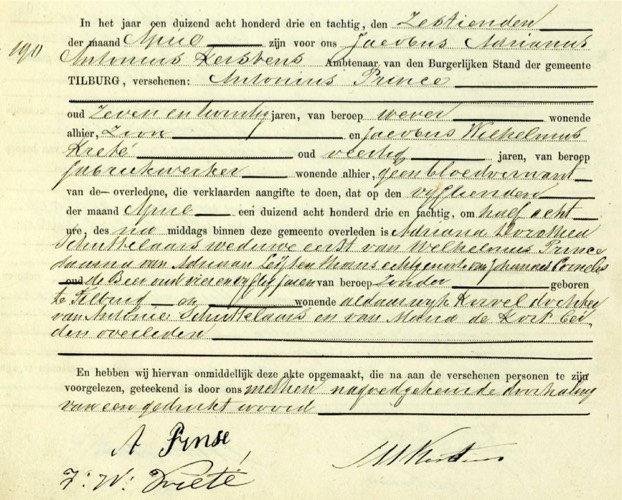 In het jaar een duizend acht honderd drie en tachtig, den Zestienden
190 der maand April zijn voor ons Jacobus Adrianus
Antonius Kerstens Ambtenaar van den Burgerlijken Stand der gemeente
TILBURG, verschenen: Antonius Prince
oud Zeven en twintig jaren, van beroep wever wonende
alhier, Zoon en Jacobus Wilhelmus
Kreté oud veertig jaren, van beroep
fabriekwerker wonende alhier, geen bloedverwant
van de overledene, die verklaarden aangifte te doen, dat op den vijftienden
der maand April een duizend acht honderd drie en tachtig, om half acht
ure, des na middags binnen deze gemeente overleden is Adriana Dorothea
Schuttelaars weduwe eerst van Wilhelmus Prince
daarna van Adriaan Leijten thans echtgenoote van Johannes Cornelis
oud de Beer oud vier en vijftig jaren van beroep Zonder geboren
te Tilburg en wonende aldaar wijk Korvel dochter
van Antonie Schuttelaars en van Maria de Kort bei
den overleden
En hebben wij hiervan onmiddelijk deze akte opgemaakt, die na aan de verschenen personen te zijn
voorgelezen, geteekend is door ons met hen nagoedgekeurde doorhaling
van een gedrukt woord
A Prinse
J: W: Kreté